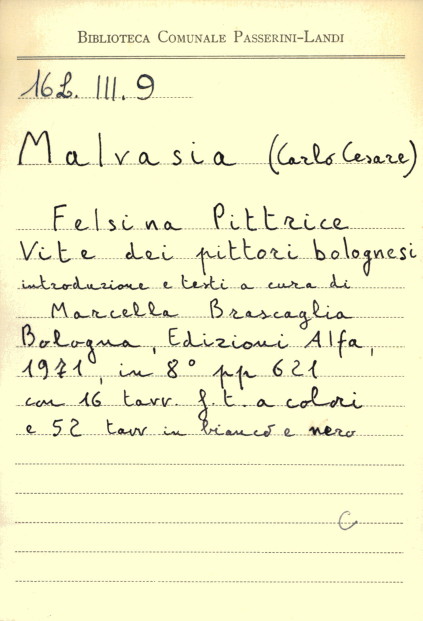 BIBLIOTECA COMUNALE PASSERINI-LANDI
16L. III. 9
Malvasia (Carlo Cesare)
Felsina Pittrice
Vite dei pittori bolognesi
introduzione e testi a cura di
Marcella Brascaglia
Bologna, Edizioni Alfa,
1971, in 8° pp 621
con 16 tavv. f.t. a colori
e 52 tavv in bianco e nero
C